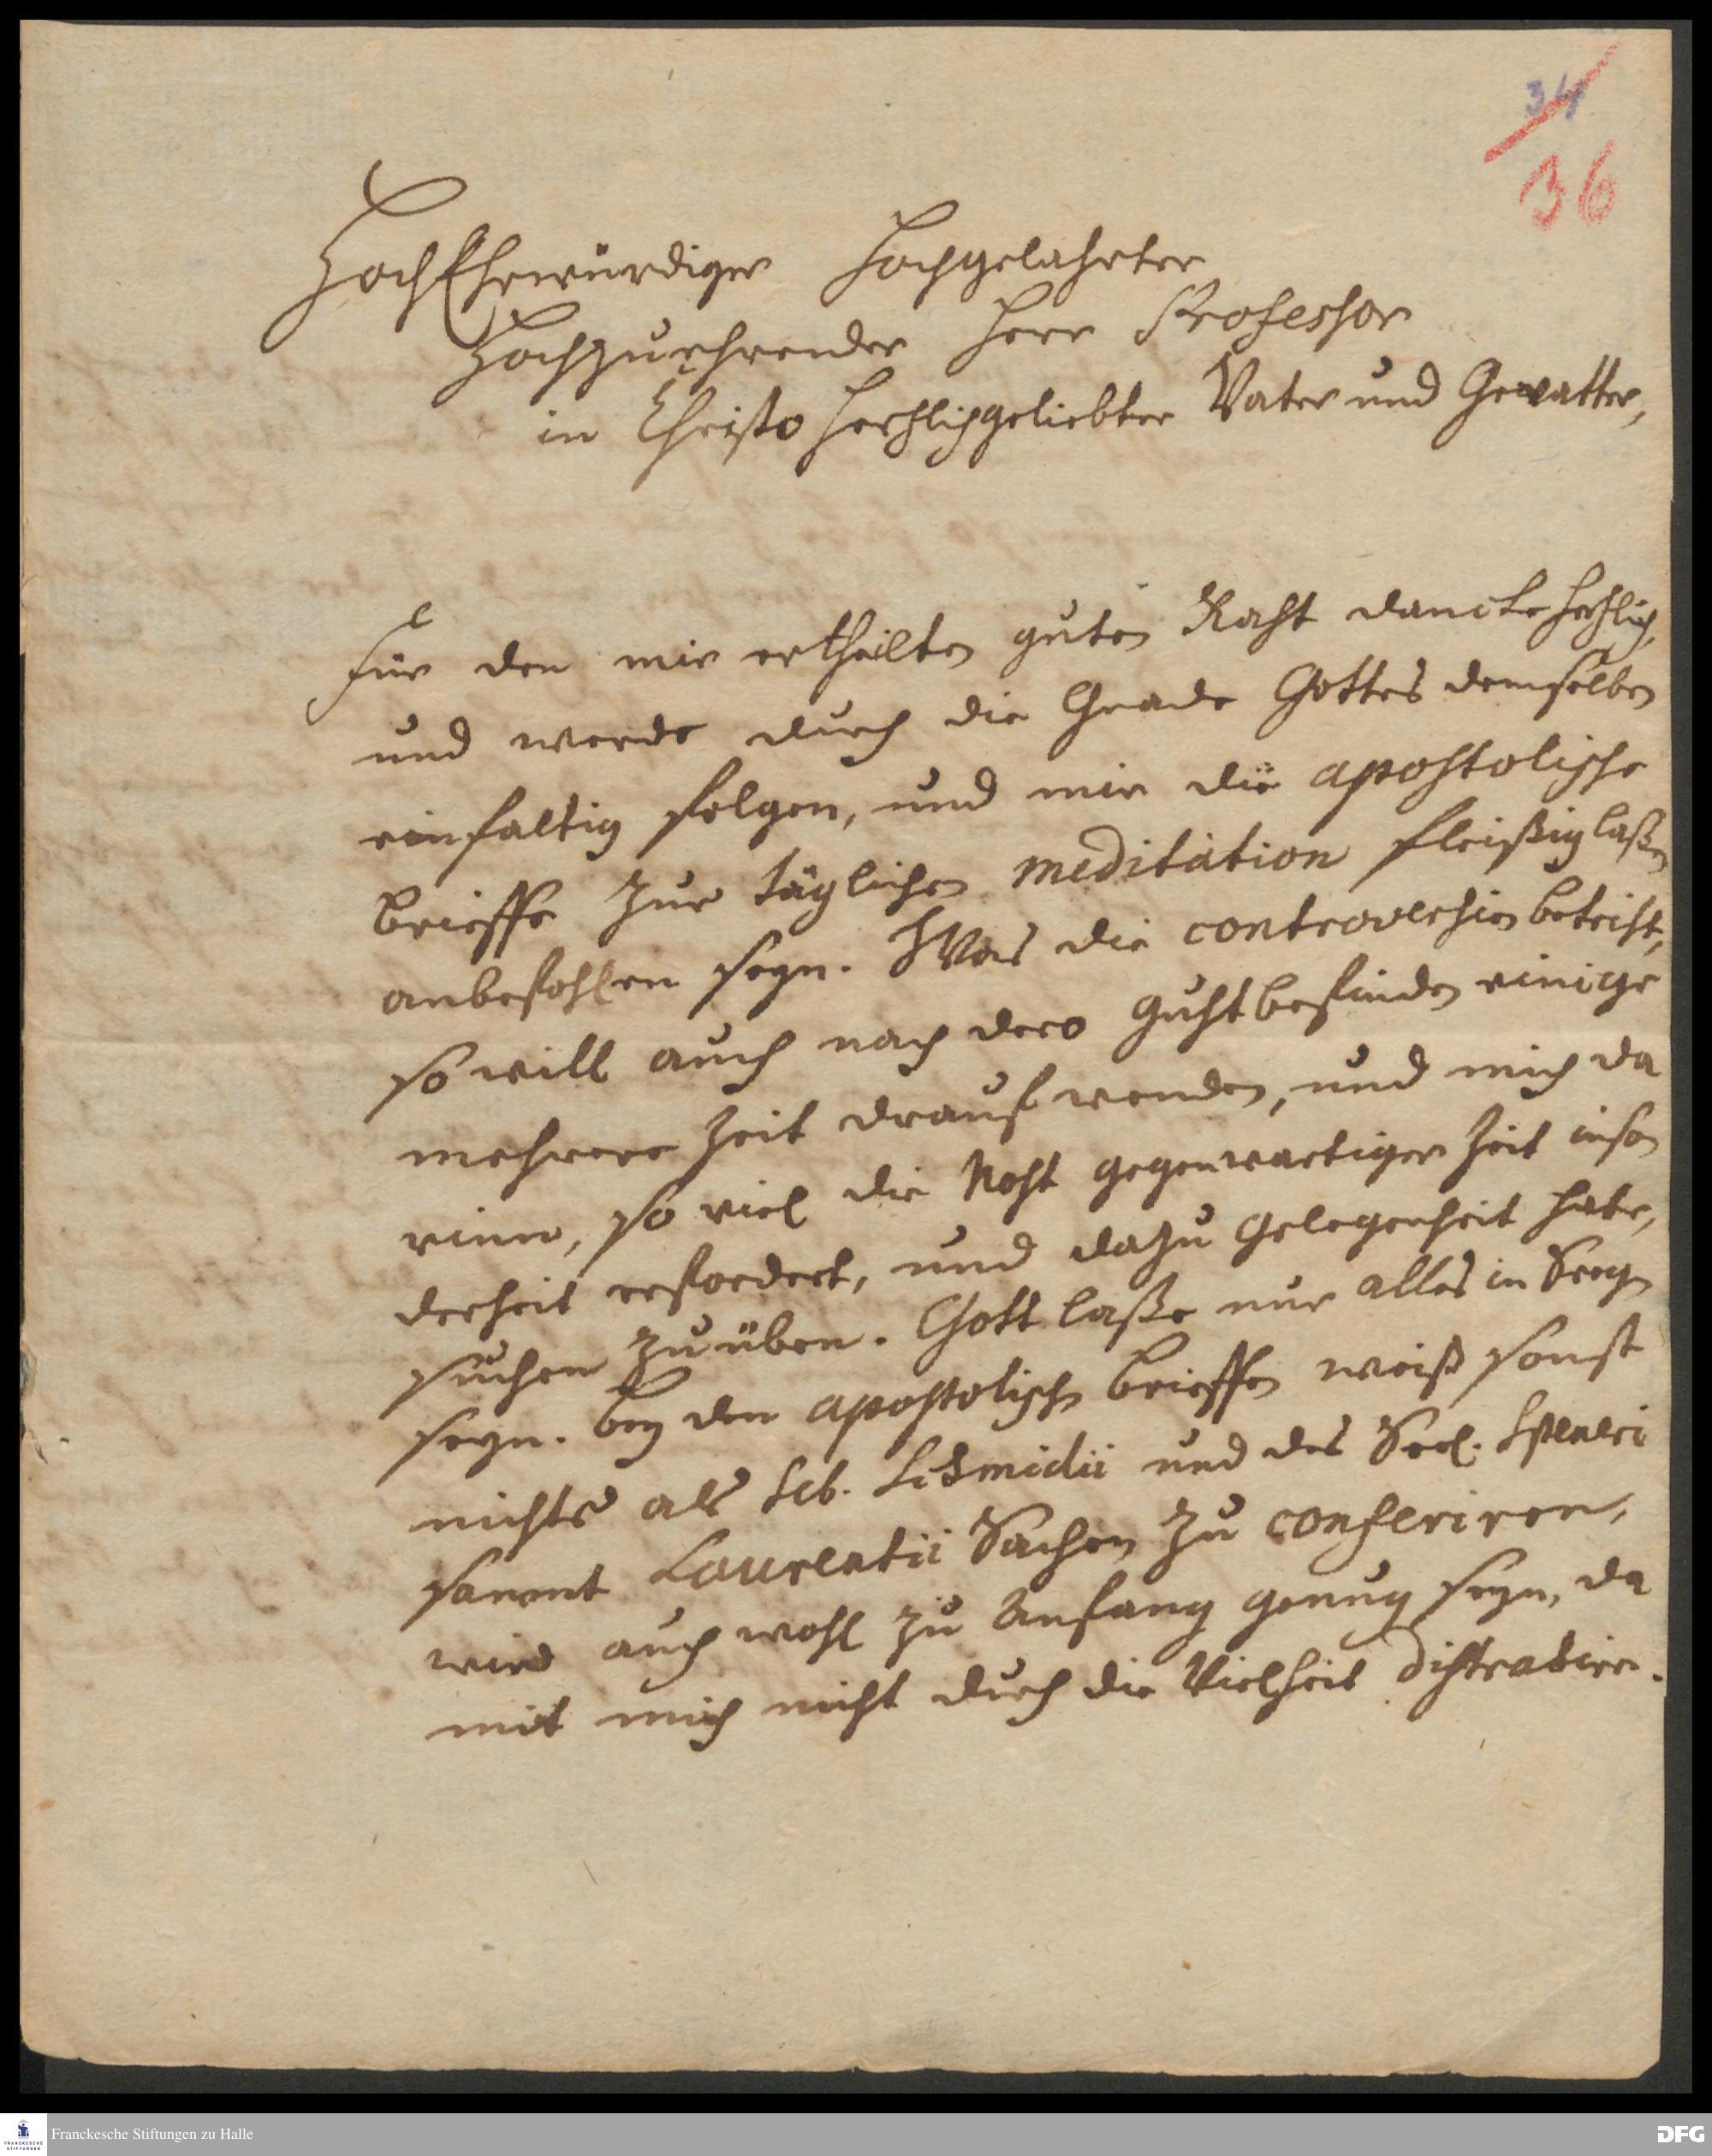 34
36
HochEhrwürdiger Hochgelahrter
Hochzuehrender Herr Professor
in Christo hertzlichgeliebter Vater und Gevatter,
Für den mir ertheilten guten Raht dancke hertzlich,
und werde durch die Gnade Gottes demselben
einfaltig folgen, und mir die apostolische
Brieffe zur täglichen meditation fleißig laßen
anbefohlen seyn. Was die controversien betrift,
so will auch nach dero guhtbefinden einige
mehrere Zeit drauf wenden, und mich da
rinn, so viel die Noht gegenwartiger Zeit inson
derheit erfordert, und dazu gelegenheit habe,
suchen zu üben. Gott laße nur alles in Seegen
seyn. Bey den apostolischen Brieffen weiß sonst
nichts als Seb. Schmidii und des Seel. Speneri
sammt Laurentii Sachen zu conferiren,
wird auch wohl zu Anfang genug seyn, da
mit mich nicht durch die Vielheit distrahire.
Franckesche Stiftungen zu Halle
FRANCKESCHE
STIFTUNGEN
DFG